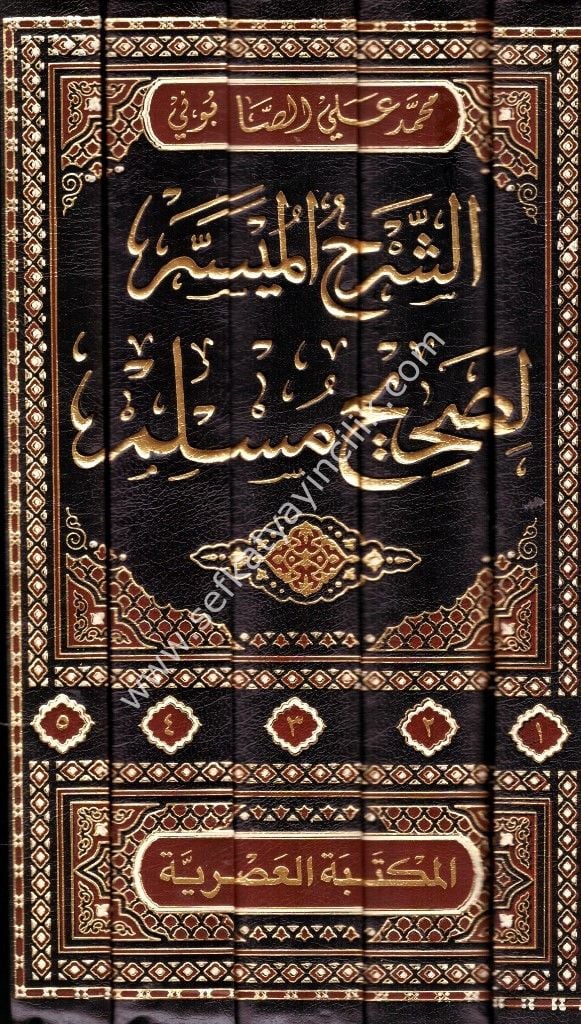 محمد علي الصابوني
الشرح الميسر
لصحيح مسلم
www.sefkatyayincilik.com
١ ٢ ٣ ٤ ٥
المكتبة العصرية